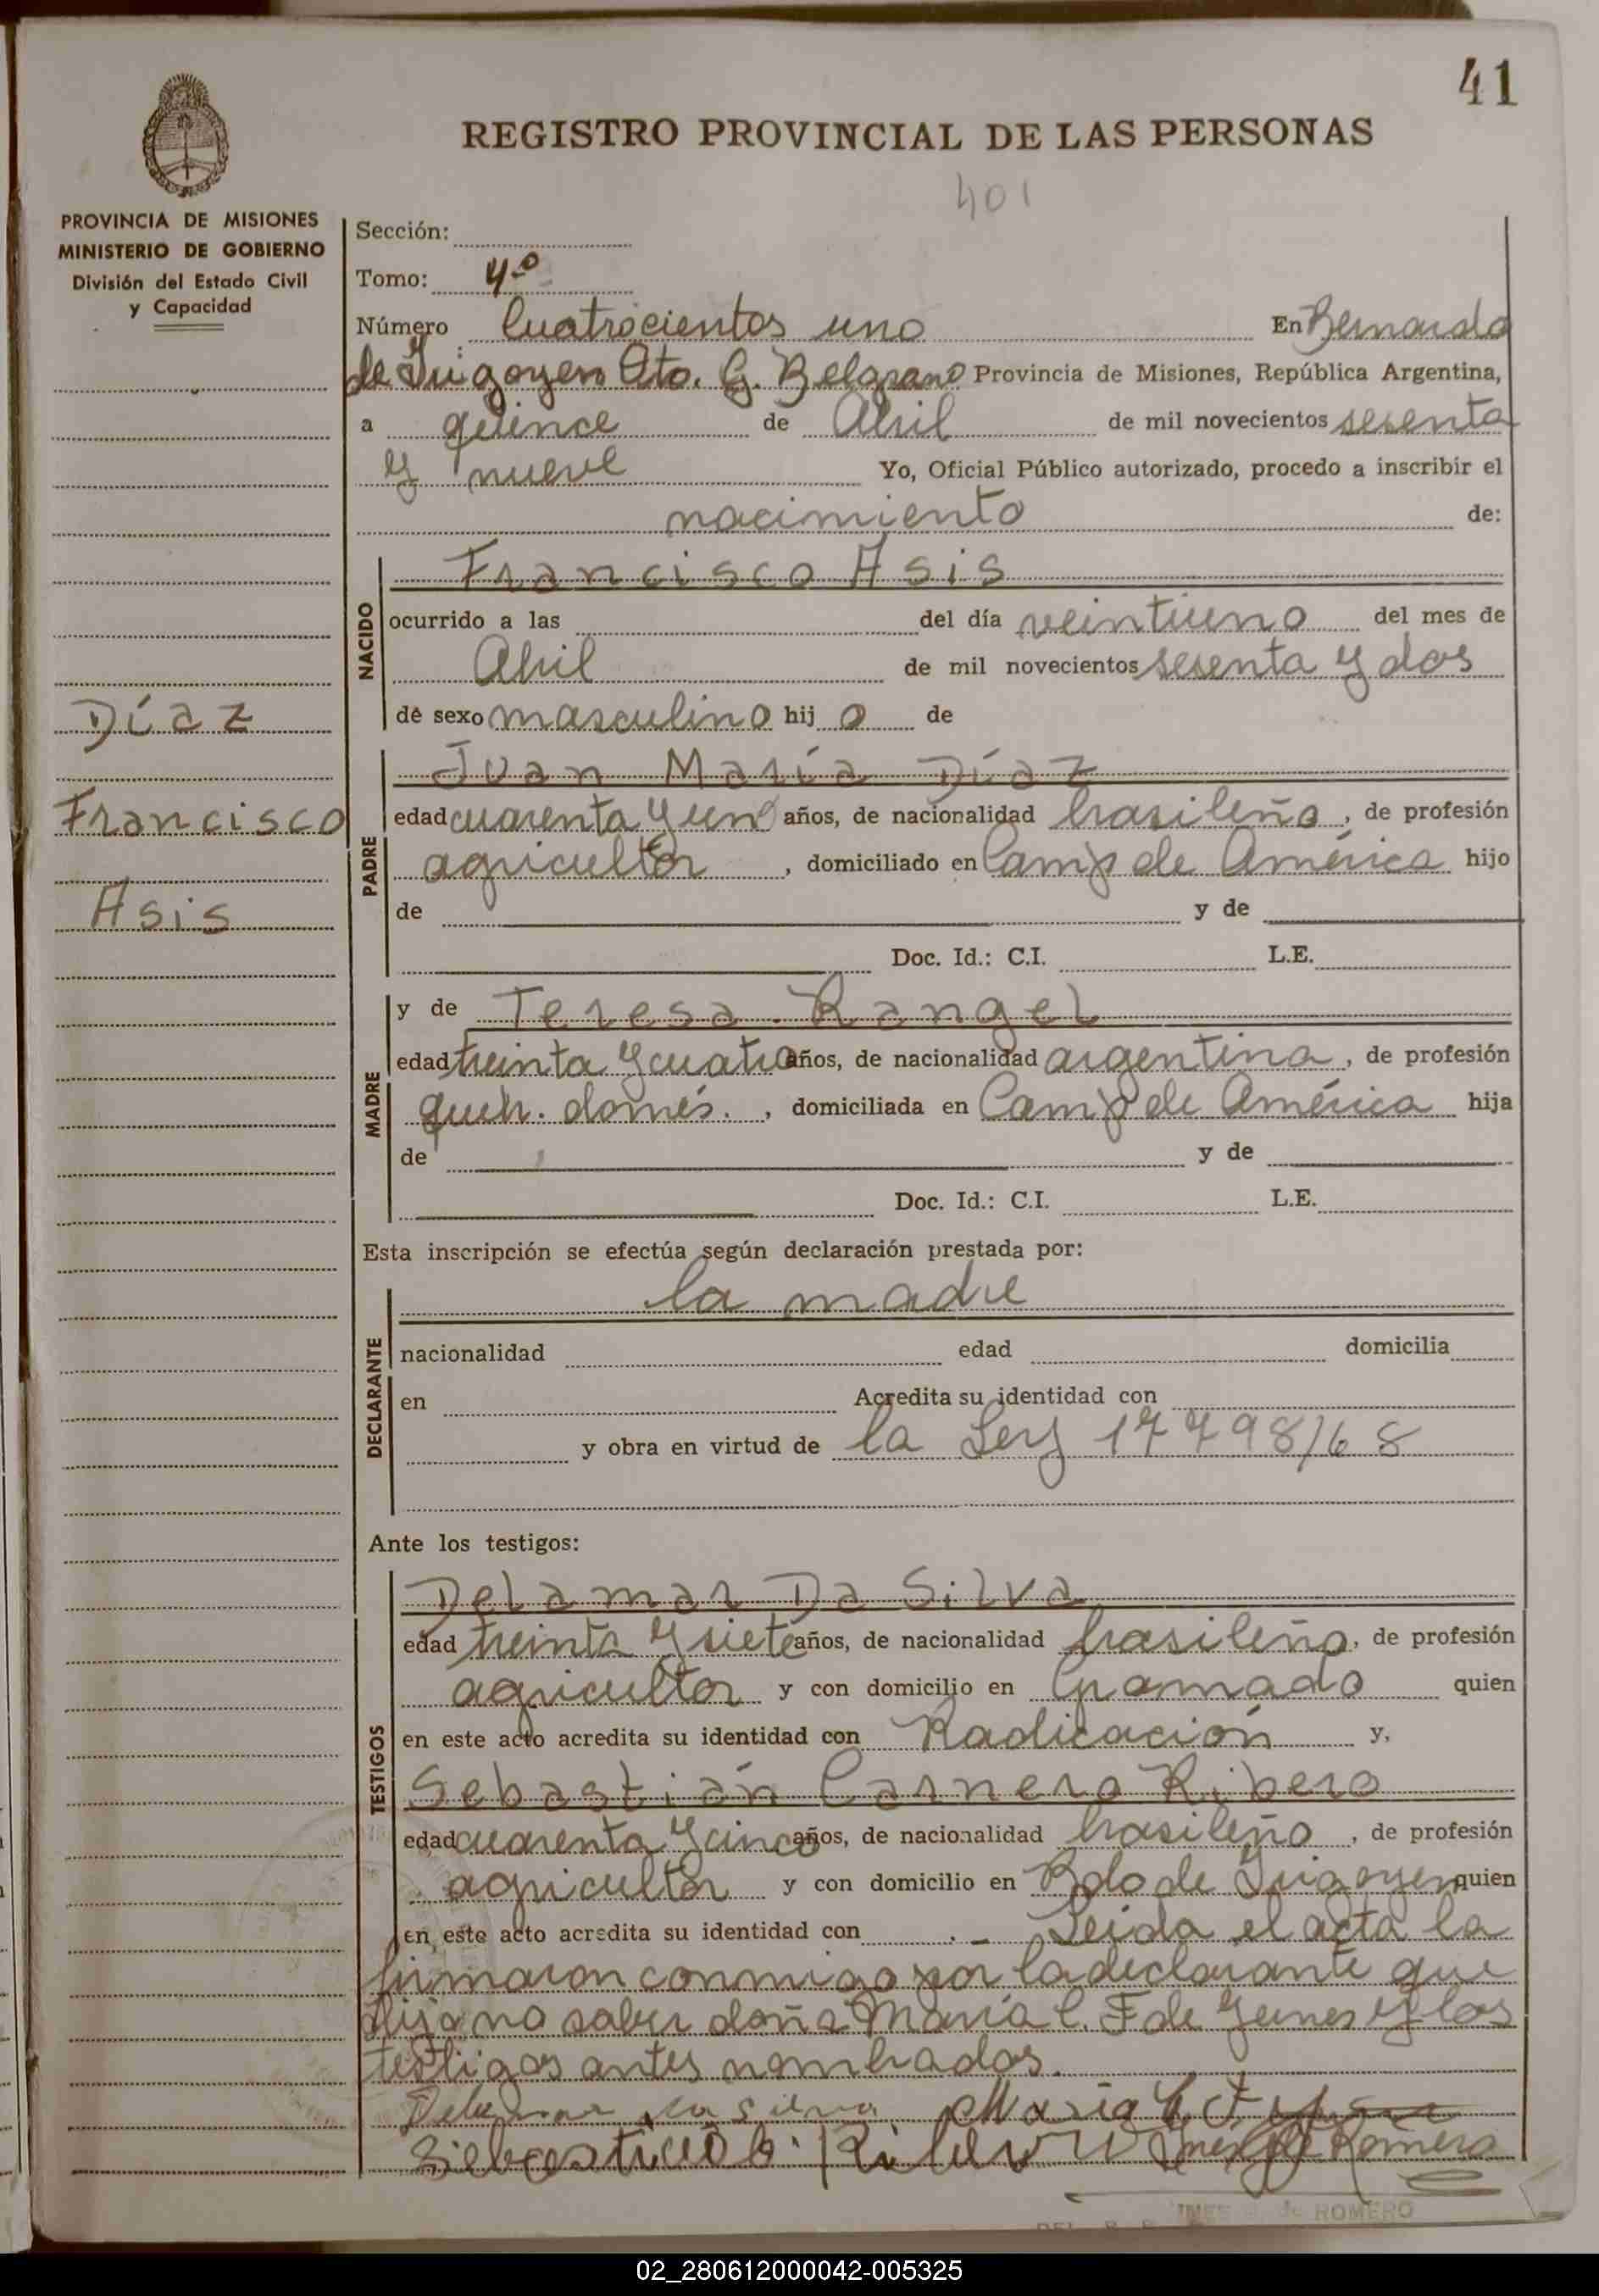 41
REGISTRO PROVINCIAL DE LAS PERSONAS
401
PROVINCIA DE MISIONES
MINISTERIO DE GOBIERNO
División del Estado Civil
y Capacidad
Sección:
Tomo: 4º
Número Cuatrocientos uno En Bernardo
de Irigoyen Dto. G. Belgrano Provincia de Misiones, República Argentina,
a quince de Abril de mil novecientos sesenta
y nueve Yo, Oficial Público autorizado, procedo a inscribir el
nacimiento de:
Díaz
Francisco
Asis
NACIDO
Francisco Asis
ocurrido a las del día veintiuno del mes de
Abril de mil novecientos sesenta y dos
de sexo masculino hij o de
PADRE
Juan María Díaz
edad cuarenta y un años, de nacionalidad brasileño, de profesión
agricultor, domiciliado en Camp de América hijo
de y de
Doc. Id.: C.I. L.E.
MADRE
y de Teresa Rangel
edad treinta y cuatro años, de nacionalidad argentina, de profesión
queh. domés., domiciliada en Camp de América hija
de y de
Doc. Id.: C.I. L.E.
Esta inscripción se efectúa según declaración prestada por:
DECLARANTE
la madre
nacionalidad edad domicilia
en Acredita su identidad con
y obra en virtud de la Ley 17798/68
Ante los testigos:
TESTIGOS
Delamar Da Silva
edad treinta y siete años, de nacionalidad brasileño, de profesión
agricultor y con domicilio en Gramado quien
en este acto acredita su identidad con Radicación y,
Sebastián Carnero Ribero
edad cuarenta y cinco años, de nacionalidad brasileño, de profesión
agricultor y con domicilio en Bdo de Irigoyen quien
en este acto acredita su identidad con . - Leida el acta la
firmaron conmigo por la declarante que
dijo no saber doña María C. F de Yunes y los
testigos antes nombrados.
María C F
Ines de Romero
INES de ROMERO
02_280612000042-005325